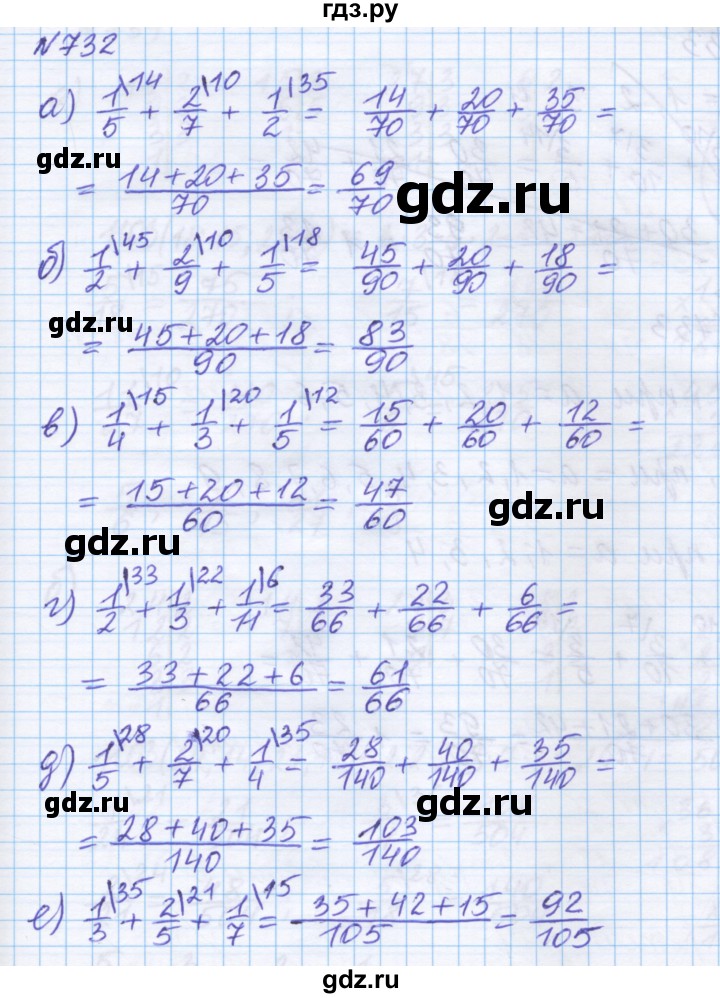 гдз.ру
№732
а) 1/5\14 + 2/7\10 + 1/2\35 = 14/70 + 20/70 + 35/70 =
gdz.ru
= (14+20+35)/70 = 69/70
gdz.ru
б) 1/2\45 + 2/9\10 + 1/5\18 = 45/90 + 20/90 + 18/90 =
gdz.ru
= (45+20+18)/90 = 83/90
в) 1/4\15 + 1/3\20 + 1/5\12 = 15/60 + 20/60 + 12/60 =
= (15+20+12)/60 = 47/60
gdz.ru
gdz.ru
г) 1/2\33 + 1/3\22 + 1/11\6 = 33/66 + 22/66 + 6/66 =
= (33+22+6)/66 = 61/66
д) 1/5\28 + 2/7\20 + 1/4\35 = 28/140 + 40/140 + 35/140 =
gdz.ru
gdz.ru
= (28+40+35)/140 = 103/140
е) 1/3\35 + 2/5\21 + 1/7\15 = (35+42+15)/105 = 92/105
gdz.ru
gdz.ru
гдз.ру